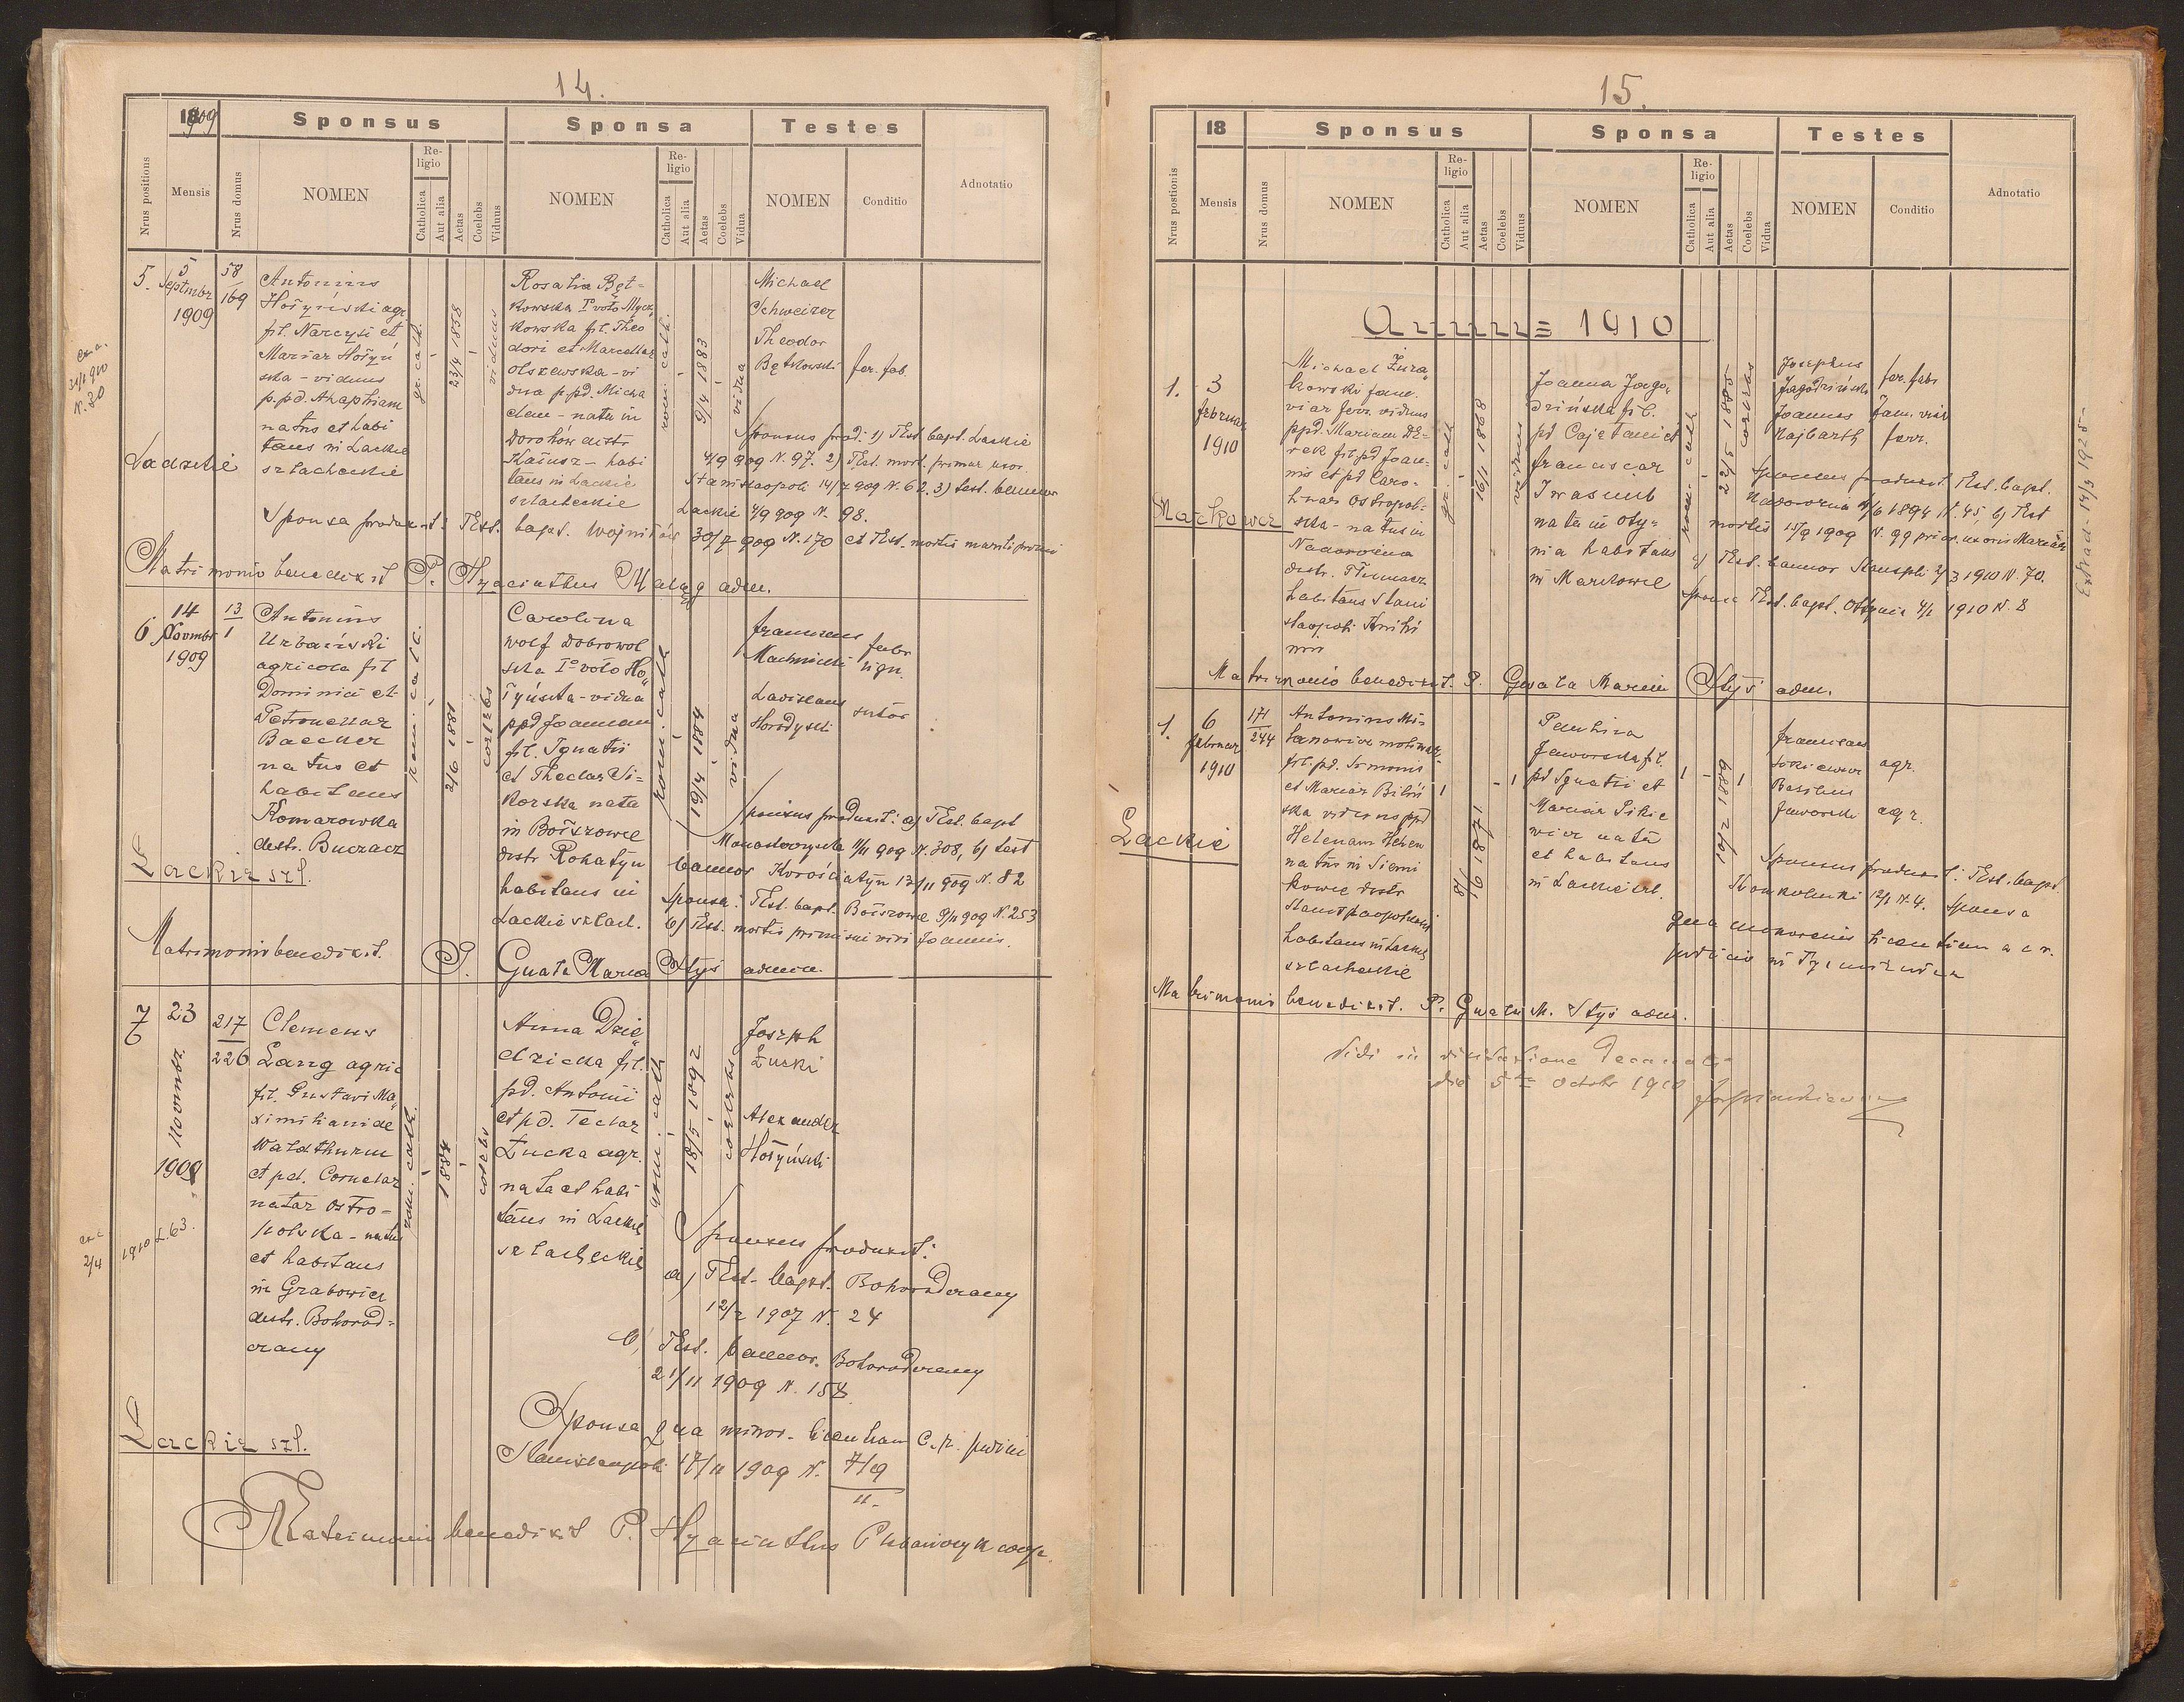 14.
1909
Sponsus
Sponsa
Testes
Nrus positions
Mensis
Nrus domus
NOMEN
Religio
Catholica
Aut alia
Aetas
Coelebs
Viduus
NOMEN
Religio
Catholica
Aut alia
Aetas
Coelebs
Vidua
NOMEN
Conditio
Adnotatio
5.
5
Septmbr
1909
58
169
Antonius
Hołyński agr.
fil. Narcysi et
Mariae Hołyń
ska - viduus
p.pd. Ahaphiam
natus et habi
tans in Lackie
szlacheckie
gr. cath.
23/4 1858
viduus
Rosalia Bęt-
kowska I voto Mycz
kowska fil. Theo
dori et Marcellae
Olszewska - vi
dua p.pd. Micha
elem - nata in
Dorohów distr
Kałusz - habi
tans in Lackie
szlacheckie
rom. cath.
9/4 1883
vidua
Michael
Schweizer
Theodor
Bętkowski
fer. fab.
Sponsus prod: 1) Test. bapt. Lackie
4/9 909 N. 97. 2) Test. mort. primae uxor.
Stanislaopoli 14/7 909 N. 62. 3) Test. bannor
Lackie 4/9 909 N. 98.
Sponsa produxit: Test. bapt. Wojniłów 30/7 909 N. 170 et Test. mortis mariti primi
Matrimonio benedixit P. Hyacinthus adm.
6
14
Novmbr
1909
13
1
Antonius
Urbański
agricola fil
Dominici et
Petronellae
Baecker
natus et
habitans
Komarowka
destr. Buczacz
rom. cath.
2/6 1881
coelebs
Carolina
Wolf Dobrowol
ska I voto Ho
łyńska - vidua
ppd Joannem
fil. Ignatii
et Theclae Si-
korska nata
in Bołszowce
distr Rohatyn
habitans in
Lackie szlach.
rom. cath
19/4 1884
vidua
Franciscus
Machnicki
fabr
lign.
Ladislaus
Horodyski
sutor
Sponsus produxit: a) Test. bapt
Monasterzyska 11/11 909 N. 308, b) test
bannor Korościatyn 13/11 909 N. 82
Sponsa: Test. bapt. Bołszowce 9/11 909 N. 253
b) Test. mortis primi sui viri Joannis.
Lackie szl.
Matrimonio benedixit. P. Gwala Maria Styś admin.
7
6
23
Novmbr
1909
217
226
Clemens
Lang agric
fil. Gustavi Ma
ximiliani de
Waldthurm
et pd. Corneliae
natae Ostro-
polska - natus
et habitans
in Grabowiec
destr. Bohorod-
czany
rom. cath.
1884
coelebs
Anna Dzie
dzicka fil.
pd. Antonii
et pd. Teclae
Łucka agr.
nata et habi
tans in Lackie
szlacheckie
rom. cath
18/5 1892
coelebs
Joseph
Łucki
Alexander
Hołyński
Sponsus produxit:
a) Test. bapt. Bohorodczany
12/2 1907 N. 24
b) Test. bannor. Bohorodczany
21/11 1909 N. 158
Sponsa qua minor. licentiam C. r. judicii
Stanislaopoli 17/11 1909 N. 7/9
11.
Lackie szl.
Matrimonio benedixit P. Hyacinthus coop.
15.
18
Sponsus
Sponsa
Testes
Nrus postionis
Mensis
Nrus domus
NOMEN
Religio
Catholica
Aut alia
Aetas
Coelebs
Viduus
NOMEN
Religio
Catholica
Aut alia
Aetas
Coelebs
Vidua
NOMEN
Conditio
Adnotatio
Annus = 1910
1.
3
februar
1910
Michael Żura
kowski fam.
viae ferr. viduus
ppd. Mariam De-
rek fil. pd Joan-
nis et pd Caro-
linae Ostropol-
ska - natus in
Nadorozna
distr. Tłumacz
habitans Stani
slaopoli
gr. cath
16/1 1868
viduus
Joanna Jago
dzińska fil.
pd Cajetani et
Franciscae
Iwasiub
nata in Oty-
nia habitans
in Markowce
rom. cath
22/5 1885
coelebs
Josephus
Jagodziński
fer. fabr
Joannes
Najbarth
fam. viae
ferr.
Sponsus produxit. Test. bapt.
Nadorozna 4/6 1894 N. 45, b) Test
mortis 15/9 1909 N. 99 prior. uxoris Mariae
c) Test. bannor Stanspli 2/3 1910 N. 70.
Sponsa Test. bapt. Ottynia 4/1 1910 N. 8
Extrad. 14/3 1925
Markowce
Matrimonio benedixit. P. Gwala Maria Styś adm.
1.
6
februar
1910
171
244
Antonius Mi-
fil. pd. Simonis
et Mariae Biliń
ska viduus ppd
Helenam
natus in Siemi
kowce distr
habitans in Lackie
szlacheckie
8/6 1871
Paulina
Jaworska fil.
pd Ignatii et
Mariae Sikie
wicz nata
et habitans
in Lackie szl.
10/2 1889
Franciscus
Sikiewicz
agr.
Basilius
Jaworski
agr.
Sponsus produxit: Test. bapt.
Konkolniki 12/1 N. 4. Sponsa
qua minorenis licentiam a c. r.
judicio in Tyśmienica
Lackie
Matrimonio benedixit. P. Gwala M. Styś adm.
Vidi in visitatione Decanali
die 5 Octobr 1910